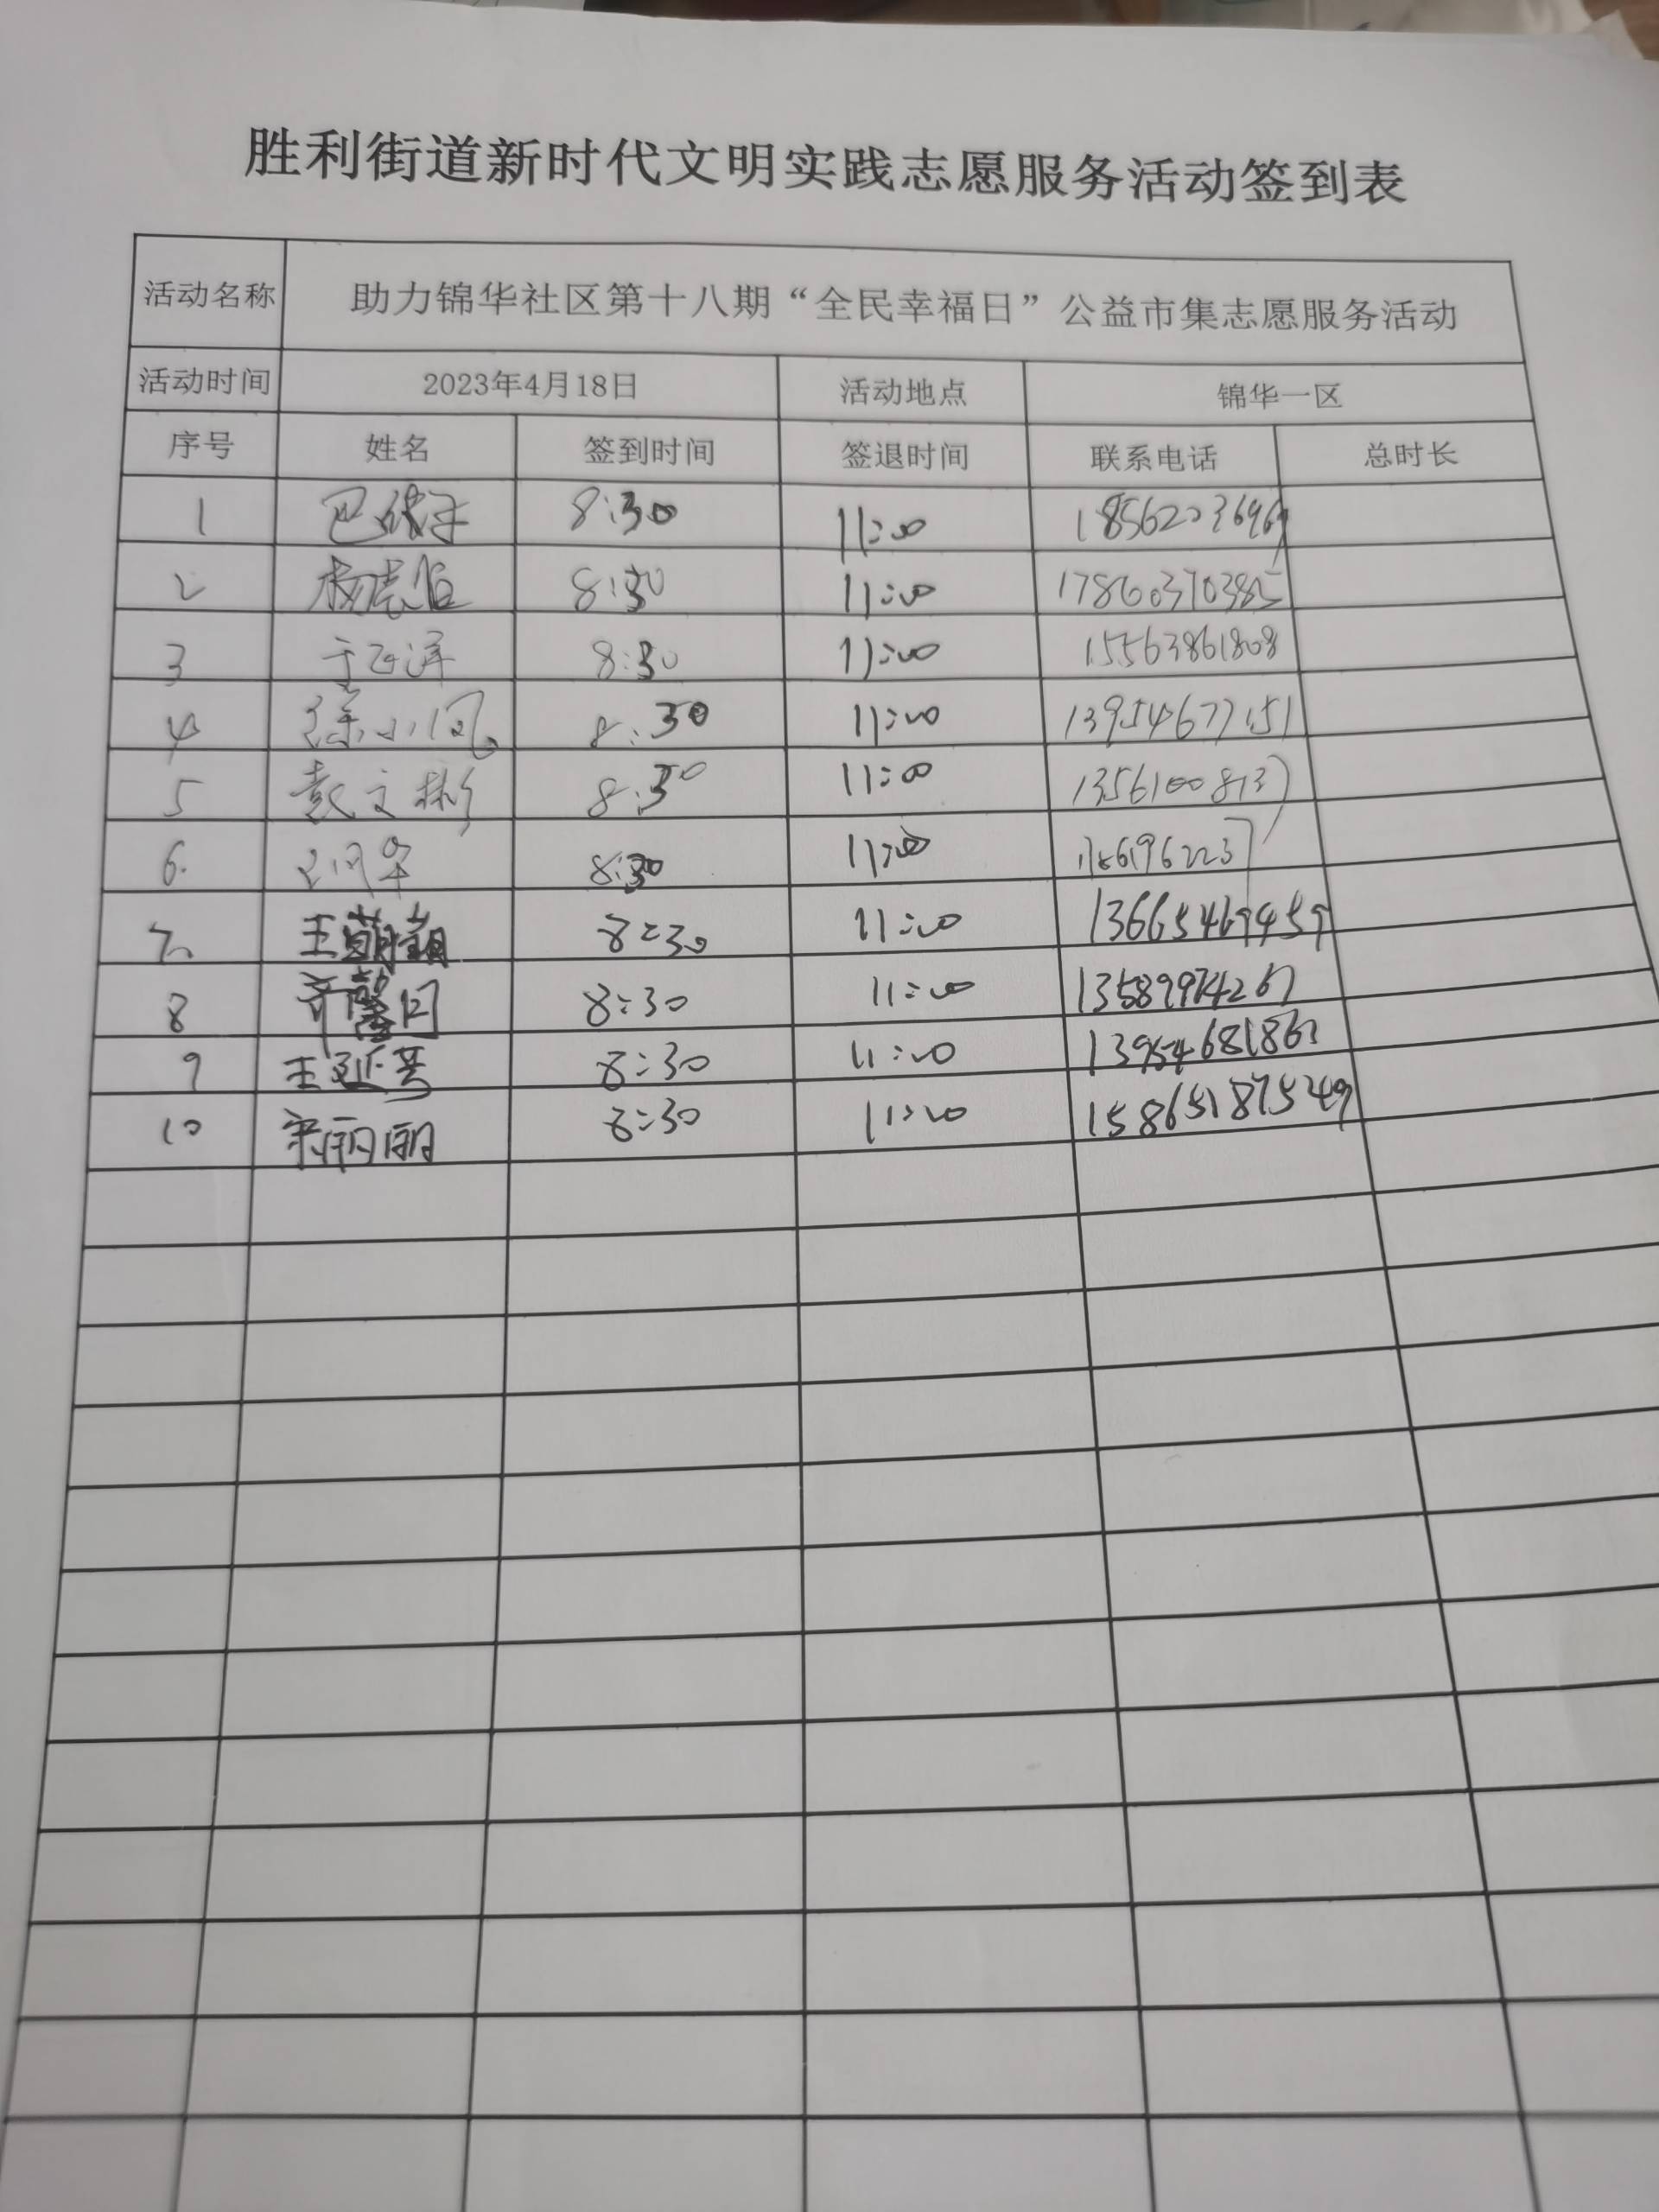 胜利街道新时代文明实践志愿服务活动签到表
活动名称 助力锦华社区第十八期“全民幸福日”公益市集志愿服务活动
活动时间 2023年4月18日 活动地点 锦华一区
序号 姓名 签到时间 签退时间 联系电话 总时长
1 8:30 11:00 18562023696
2 8:30 11:00 17860370385
3 8:30 11:00 15563861808
4 徐小凤 8:30 11:00 13954677151
5 彭文彬 8:30 11:00 13561008137
6. 8:30 11:00
7 王萌萌 8:30 11:00 13665469459
8 齐馨园 8:30 11:00
9 王延芳 8:30 11:00 13954681861
10 宋丽丽 8:30 11:00